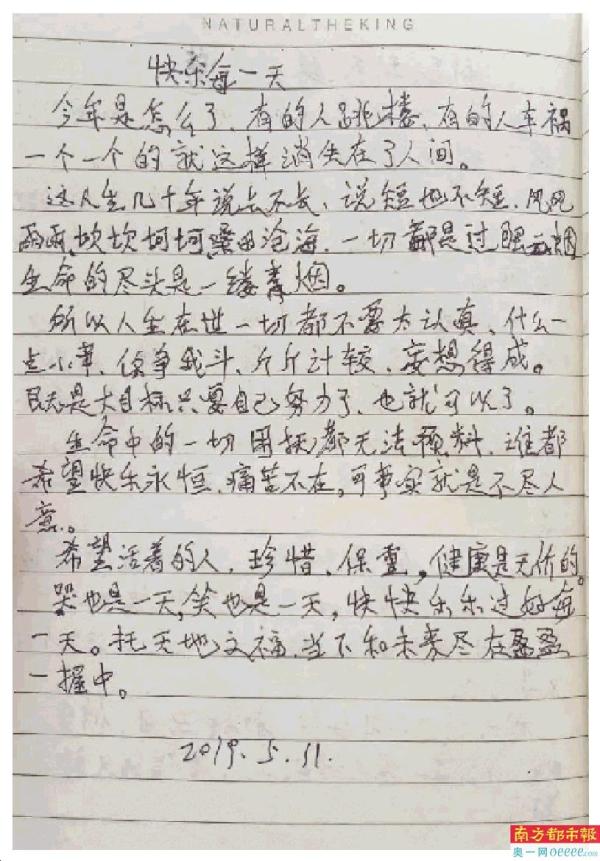 NATURALTHEKING
快乐每一天
今年是怎么了、有的人跳楼、有的人车祸
一个一个的就这样消失在了人间。
这人生几十年说长不长、说短也不短、风风
雨雨、坎坎坷坷、桑田沧海、一切都是过眼云烟
生命的尽头是一缕青烟。
所以人生在世一切都不要太认真、什么一
点小事、你争我斗、斤斤计较、妄想得成。
是大目标只要自己努力了、也就可以了。
生命中的一切困扰都无法预料、谁都
希望快乐永恒、痛苦不在，可事实就是不尽人
意。
希望活着的人、珍惜、保重，健康是无价的。
哭也是一天，笑也是一天，快快乐乐过好每
一天。托天地之福，当下和未来尽在盈盈
一握中。
2019.5.11.
南方都市报
奥一网oeeee.com